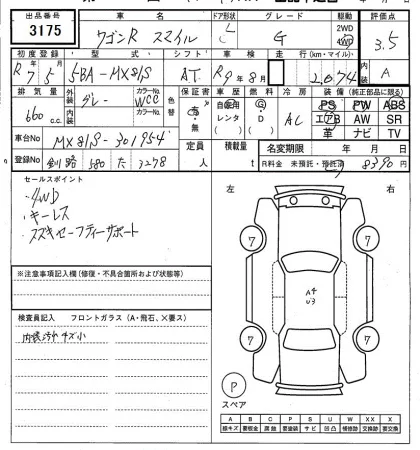 出品番号 車名 ドア形状 グレード 駆動 評価点
3175 ワゴンR スマイル G 2WD 4WD 3.5
初度登録 型式 シフト 車検 走行(km・マイル) 内装
R7 5 5BA-MX81S AT R9年8月 2,074 A
排気量 外装 グレー カラーNo. 色替 保証書 車歴 燃料 冷房 装備(純正部品に限る)
660 c.c. 内装 カラーNo. 有・無 自家用 レンタ G・D AC PS PW ABS
エアB AW SR
革 ナビ TV
車台No MX81S-301954 定員 人 積載量 t 名変期限 年 月 日
登録No 釧路 580 た 3278 R料金 未預託・預託済 8390円
セールスポイント
・4WD
・キーレス
・スズキセーフティーサポート
左 右
7 7
7 7
A4
U3
※注意事項記入欄(修復・不具合箇所および状態等)
検査員記入 フロントガラス(A・飛石、×要ス)
内装汚れ キズ小
P
スペア
A B C P S U W X XX
線キズ 要板金 腐蝕 要塗装 サビ 凹凸 補修跡 交換跡 要交換